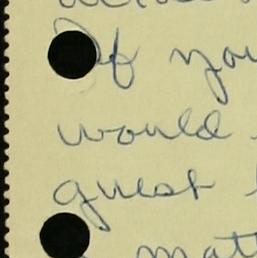 If you
would
guest
matt